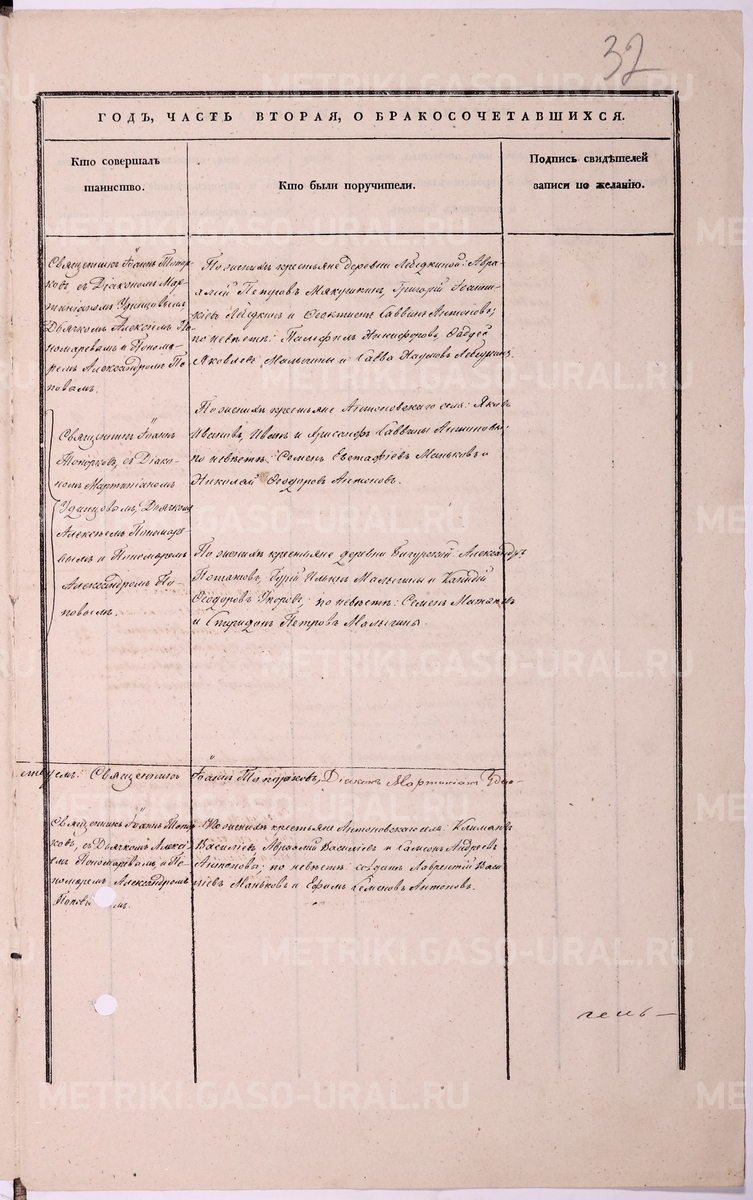 32
ГОДЪ, ЧАСТЬ ВТОРАЯ, О БРАКОСОЧЕТАВШИХСЯ.
Кто совершалъ
таинство.
Кто были поручители.
Подпись свидѣтелей
записи по желанію.
Священникъ Іоаннъ Топор-
ковъ съ Діакономъ Мар-
тиніаномъ Удинцовымъ
Дьячкомъ Алексѣемъ По-
номаревымъ и Понома-
ремъ Александромъ По-
повымъ.
По женихѣ крестьяне деревни Лебедкиной: Авра-
амій Петровъ Мякушкинъ, Григорій Іоанни-
кіевъ Лебедкинъ и Ѳеоктистъ Саввинъ Антоновъ;
по невѣстѣ: Памфилъ Никифоровъ, Фаддей
Яковлевъ Малыгины и Савва Наумовъ Лебедкинъ.
Священникъ Іоаннъ
Топорковъ, съ Діако-
номъ Мартиніаномъ
Удинцовымъ, Дьячкомъ
Алексѣемъ Пономаре-
вымъ и Пономаремъ
Александромъ По-
повымъ.
По женихѣ крестьяне Антоновскаго села: Яковъ
Ивановъ, Иванъ и Саввины Антоновы;
по невѣстѣ: Семенъ Евстафіевъ Маньковъ и
Николай Ѳеодоровъ Антоновъ.
По женихѣ крестьяне деревни Бичурской Александръ
Потаповъ, Гурій Ильинъ Малыгины и
Ѳеодоровъ по невѣстѣ: Семенъ
и Спиридонъ Петровъ Малыгины.
Священникъ Іоаннъ Топорковъ, Діаконъ Мартиніанъ Удин-
Священникъ Іоаннъ Топор-
ковъ, съ Дьячкомъ Алексѣ-
емъ Пономаревымъ и По-
номаремъ Александромъ
Поповымъ.
По женихѣ крестьяне Антоновскаго села: Климентъ
Василіевъ, Авраамій Василіевъ и Самсонъ Андреевъ
Антоновы; по невѣстѣ: солдатъ Лаврентій Васи-
ліевъ Маньковъ и Ефимъ Семеновъ Антоновъ.
METRIKI.GASO-URAL.RU